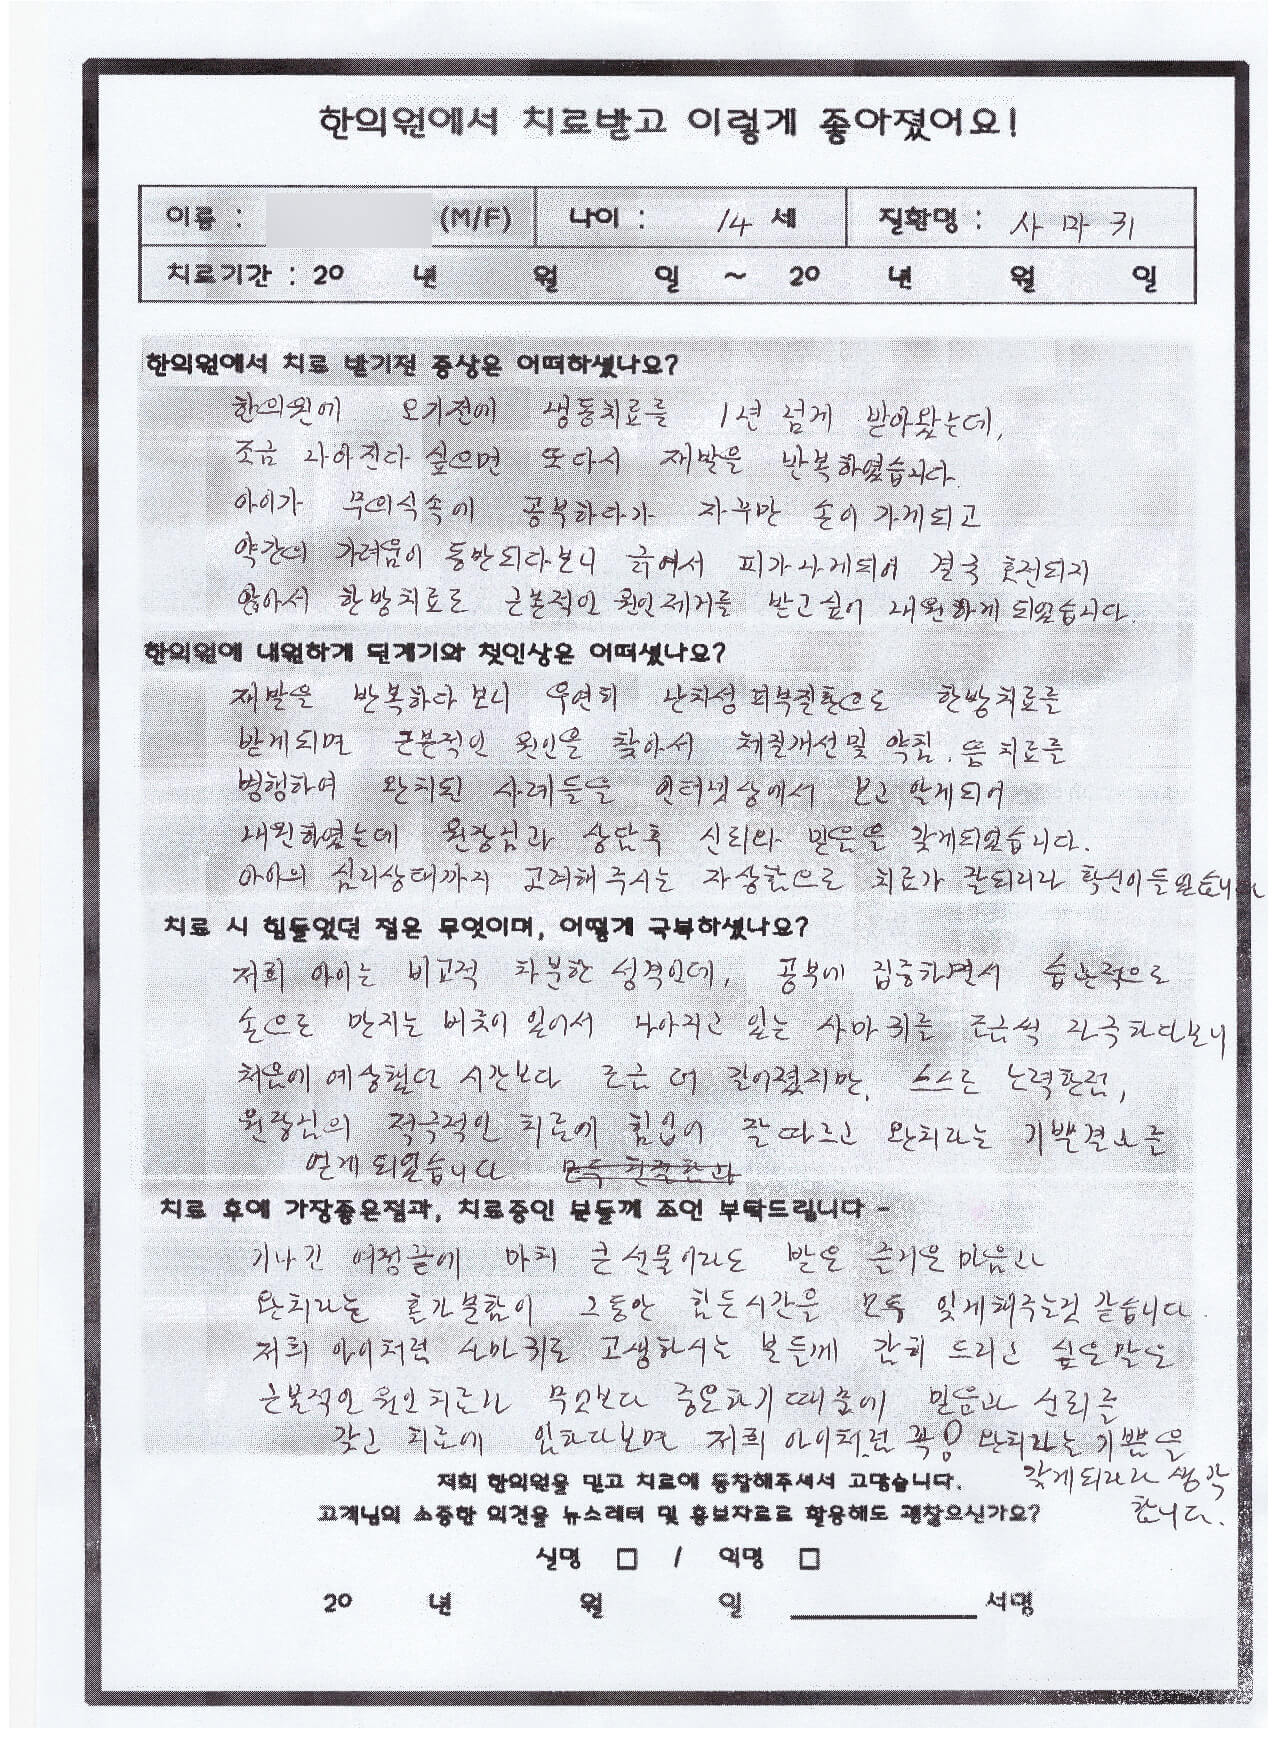 한의원에서 치료받고 이렇게 좋아졌어요!
이름 : (M/F) 나이 : 14 세 질환명 : 사마귀
치료기간 : 20 년 월 일 ~ 20 년 월 일
한의원에서 치료 받기전 증상은 어떠하셨나요?
한의원에 오기전에 냉동치료를 1년 넘게 받아왔는데,
조금 나아진다 싶으면 또다시 재발을 반복하였습니다.
아이가 무의식속에 공부하다가 자꾸만 손이 가게되고
약간의 가려움이 동반되다보니 긁어서 피가나게되어 결국 호전되지
않아서 한방치료로 근본적인 원인제거를 받고싶어 내원하게 되었습니다.
한의원에 내원하게 된계기와 첫인상은 어떠셨나요?
재발을 반복하다 보니 우연히 난치성피부질환으로 한방치료를
받게되면 근본적인 원인을 찾아서 체질개선및 약침. 뜸 치료를
병행하여 완치된 사례들을 인터넷상에서 보고 알게되어
내원하였는데 원장님과 상담후 신뢰와 믿음을 갖게되었습니다.
아이의 심리상태까지 고려해주시는 자상함으로 치료가 잘되리라 확신이들었습니다
치료 시 힘들었던 점은 무엇이며, 어떻게 극복하셨나요?
저희 아이는 비교적 차분한 성격인데, 공부에 집중하면서 습관적으로
손으로 만지는 버릇이 있어서 나아지고 있는 사마귀를 조금씩 자극하다보니
처음에 예상했던 시간보다 조금 더 길어졌지만, 스스로 노력한점,
원장님의 적극적인 치료에 힘입어 잘 따르고 완치라는 기쁜결과를
얻게되었습니다
치료 후에 가장좋은점과, 치료중인 분들께 조언 부탁드립니다 -
기나긴 여정끝에 마치 큰선물이라도 받은 즐거운 마음과
완치라는 홀가분함이 그동안 힘든시간을 모두 잊게해주는것 같습니다.
저희 아이처럼 사마귀로 고생하시는 분들께 감히 드리고 싶은 말은
근본적인 원인치료가 무엇보다 중요하기 때문에 믿음과 신뢰를
갖고 치료에 임하다보면 저희 아이처럼 꼭! 완치라는 기쁨을
갖게되리라 생각
합니다.
저희 한의원을 믿고 치료에 동참해주셔서 고맙습니다.
고객님의 소중한 의견을 뉴스레터 및 홍보자료로 활용해도 괜찮으신가요?
실명 □ / 익명 □
20 년 월 일 서명